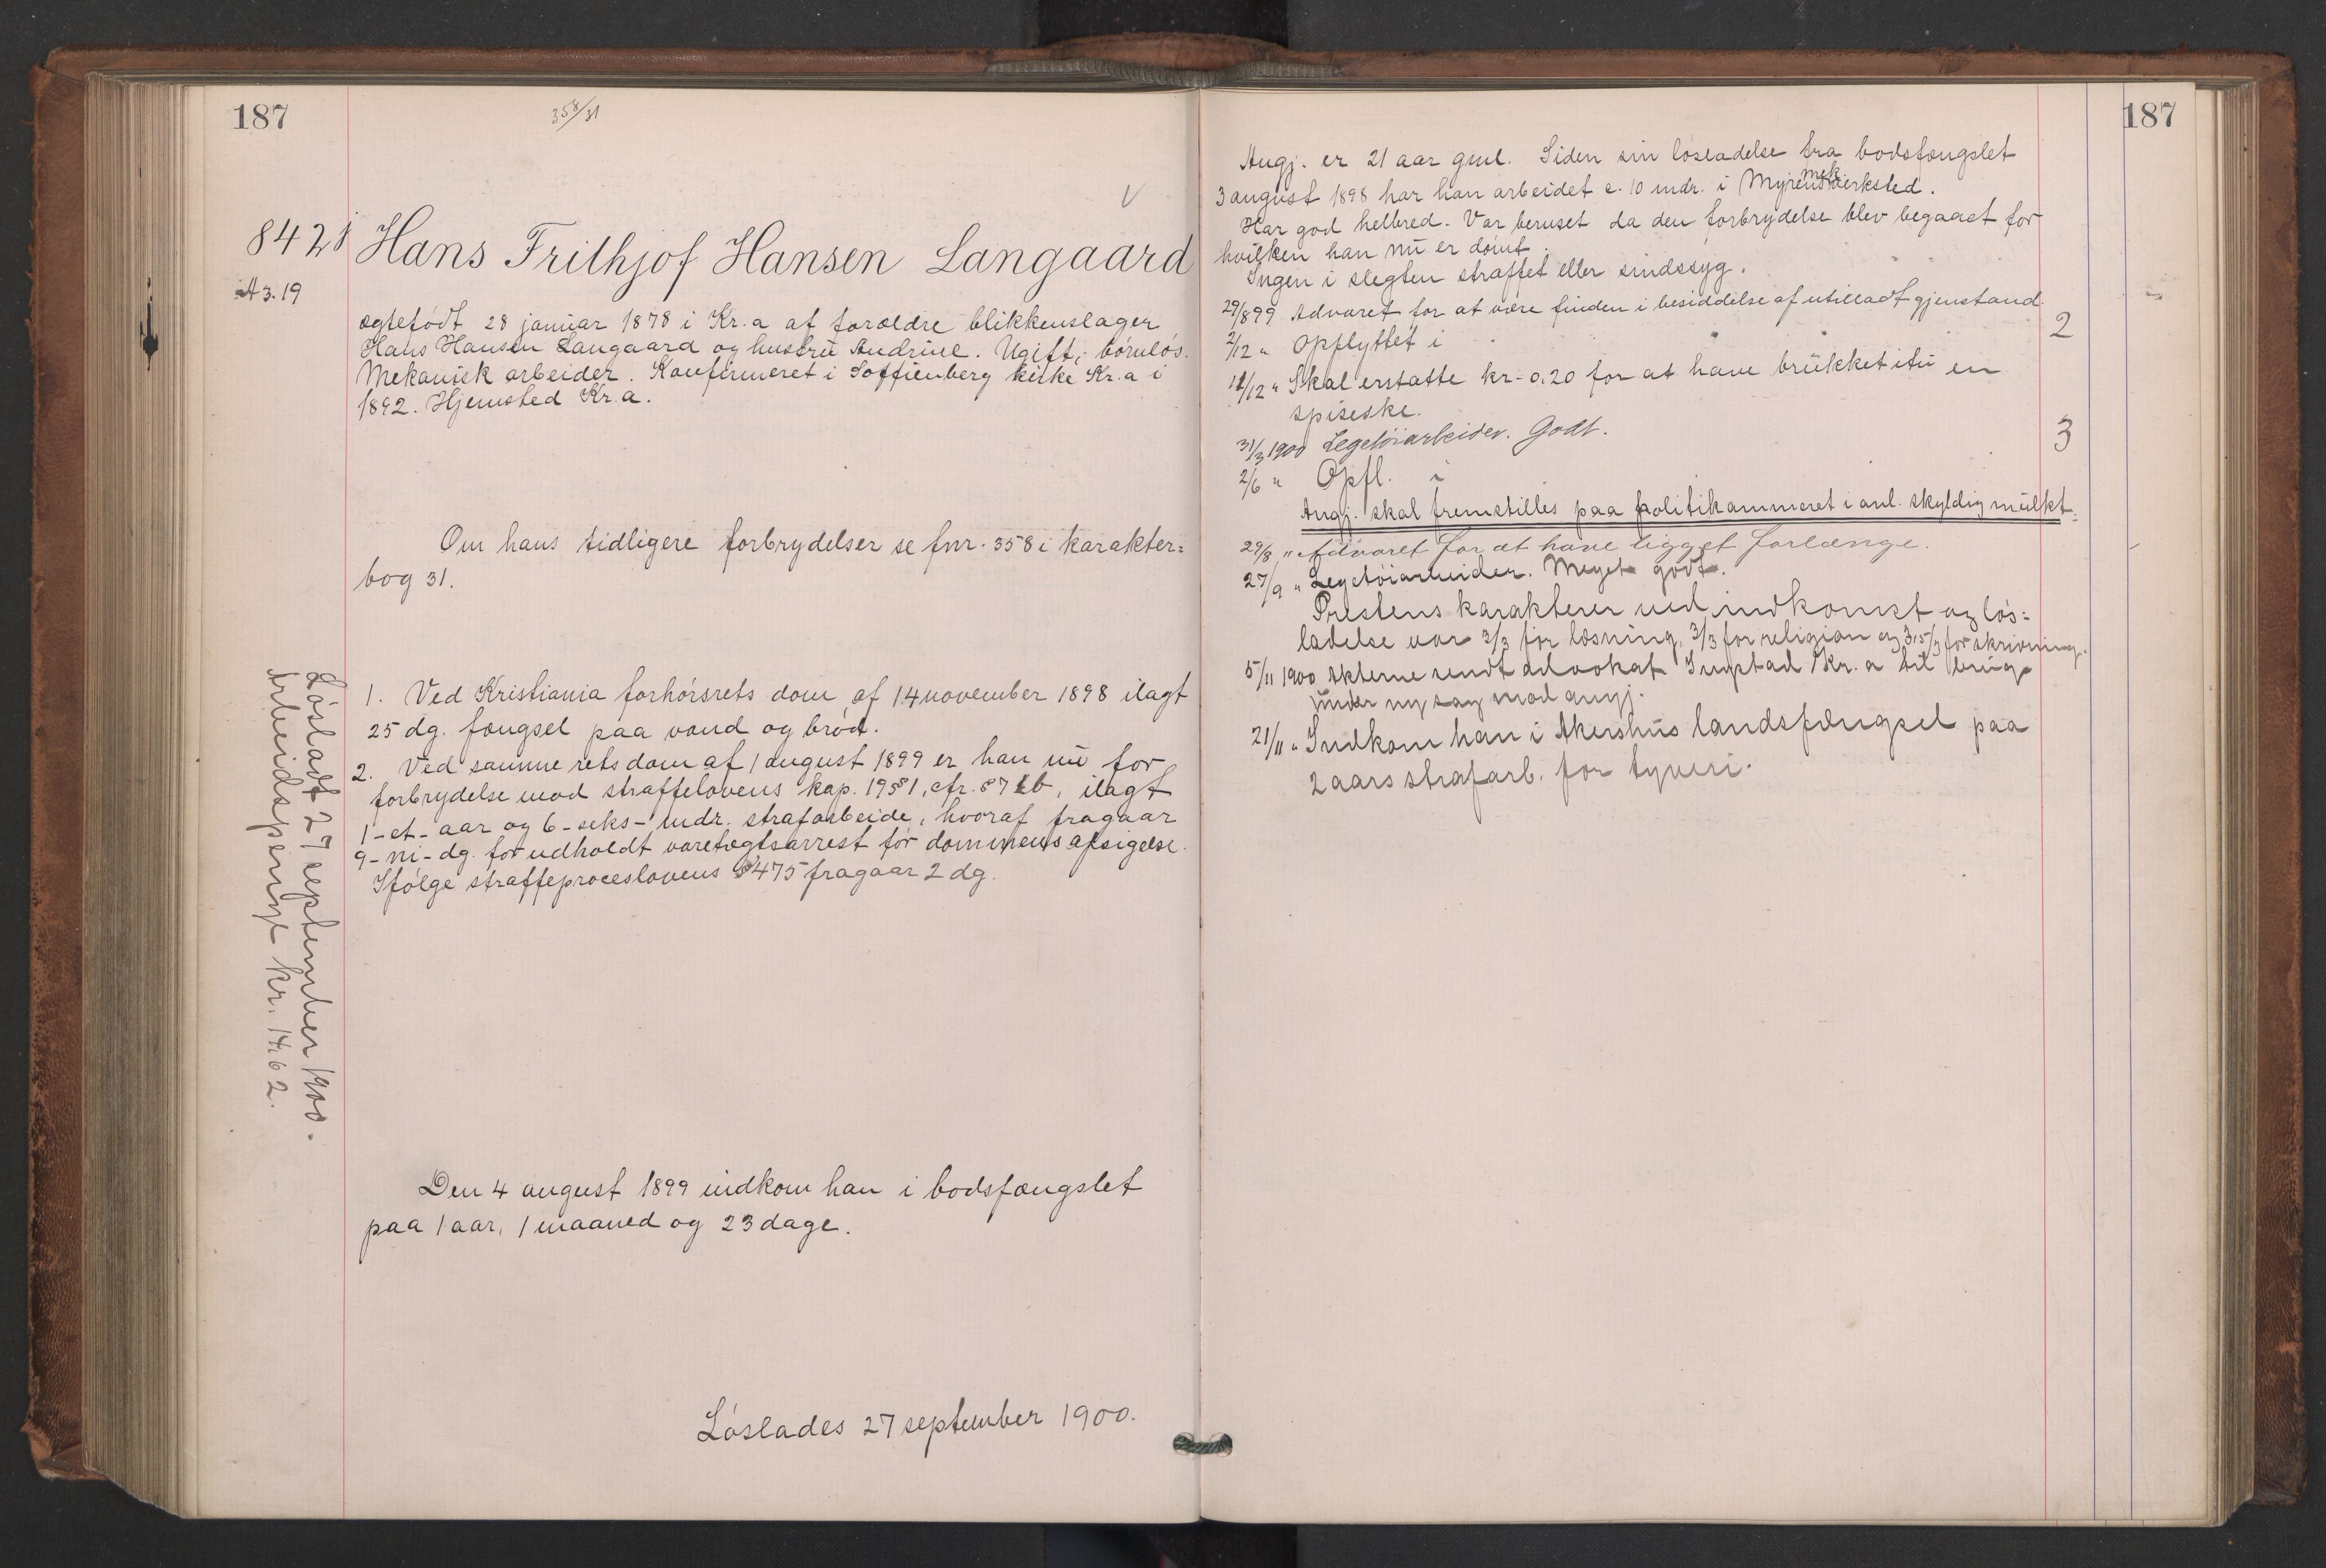 187
358/31
V
8428
A 3.19
Hans Frithjof Hansen Langaard
ægtefødt 28 januar 1878 i Kr.a af forældre blikkenslager
Hans Hansen Langaard og hustru Andrine. Ugift, børnløs.
Mekanisk arbeider. Konfirmeret i Soffienberg kirke Kr.a i
1892. Hjemsted Kr.a.
Om hans tidligere forbrydelser se fnr. 358 i karakter=
bog 31.
1. Ved Kristiania forhørsrets dom af 14 november 1898 ilagt
25 dg. fængsel paa vand og brød.
2. Ved samme rets dom af 1 august 1899 er han nu for
forbrydelse mod straffelovens kap. 19§1, cfr. §7 b, ilagt
1-et-aar og 6-seks-mdr. strafarbeide, hvoraf fragaar
9-ni-dg. for udholdt varetægtsarrest før dommens afsigelse.
Ifølge straffeproceslovens §475 fragaar 2 dg.
Løsladt 27 september 1900.
Arbeidspenge kr. 14.62.
Den 4 august 1899 indkom han i bodsfængslet
paa 1 aar, 1 maaned og 23 dage.
Løslades 27 september 1900.
187
Angj. er 21 aar gml. Siden sin løsladelse fra bodsfængslet
3 august 1898 har han arbeidet c. 10 mdr. i Myrens mek. værksted.
Har god helbred. Var beruset da den forbrydelse blev begaaet for
hvilken han nu er dømt.
Ingen i slegten straffet eller sindssyg.
29/8 99 Advaret for at være finden i besiddelse af utilladt gjenstand
2/12 " Opflyttet i 2
11/12 " Skal erstatte kr-0.20 for at have brükket itu en
spiseske.
31/3 1900 Legetøiarbeider. Godt.
2/6 " Opfl. i 3
Angj. skal fremstilles paa politikammeret i anl. skyldig mulkt.
29/8 " Advaret for at have ligget forlænge.
27/9 " Legetøiarbeider. Meget godt.
Prestens karakterer ved indkomst og løs=
ladelse var 3/3 for læsning, 3/3 for religion og 3,5/3 for skrivning.
5/11 1900 Akterne sendt advokat Kr. a til brug
under ny sag mod angj.
21/11 " Indkom han i Akershus landsfængsel paa
2 aars strafarb. for tyveri.